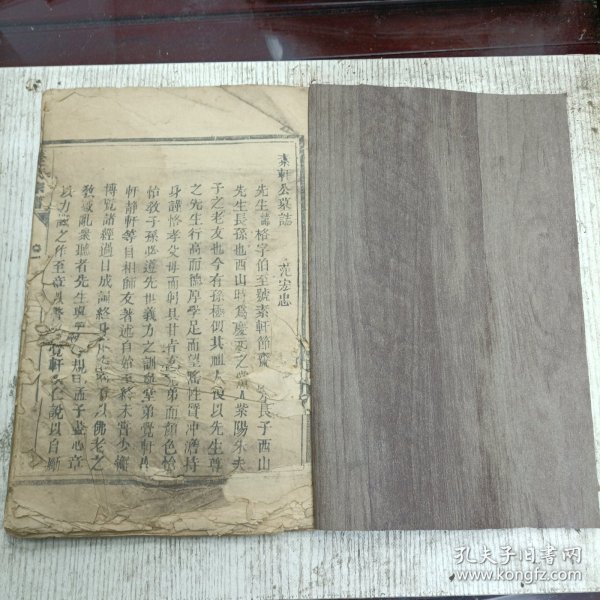 素軒公墓誌
范宏忠
先生諱格字伯至號素軒節齋 長子西山
先生長孫也西山時爲慶元之 人紫陽朱夫
子之老友也今有孫極假其祖 復以先生尊
之先生行高而德厚學足而望 性質冲澹持
身謹恪孝父母而躬具甘旨 弟而顏色怡
怡教子孫必遵先世義方之訓 堂弟覺軒
軒靜軒等自相師友著述自始至終未嘗少懈
博覽諸經過目成誦終身 以佛老之
教惑亂衆聽者先生 規 孟子盡心章
以力 之作至 覺軒 仁說以自勵
孔夫子旧书网
www.kongfz.com